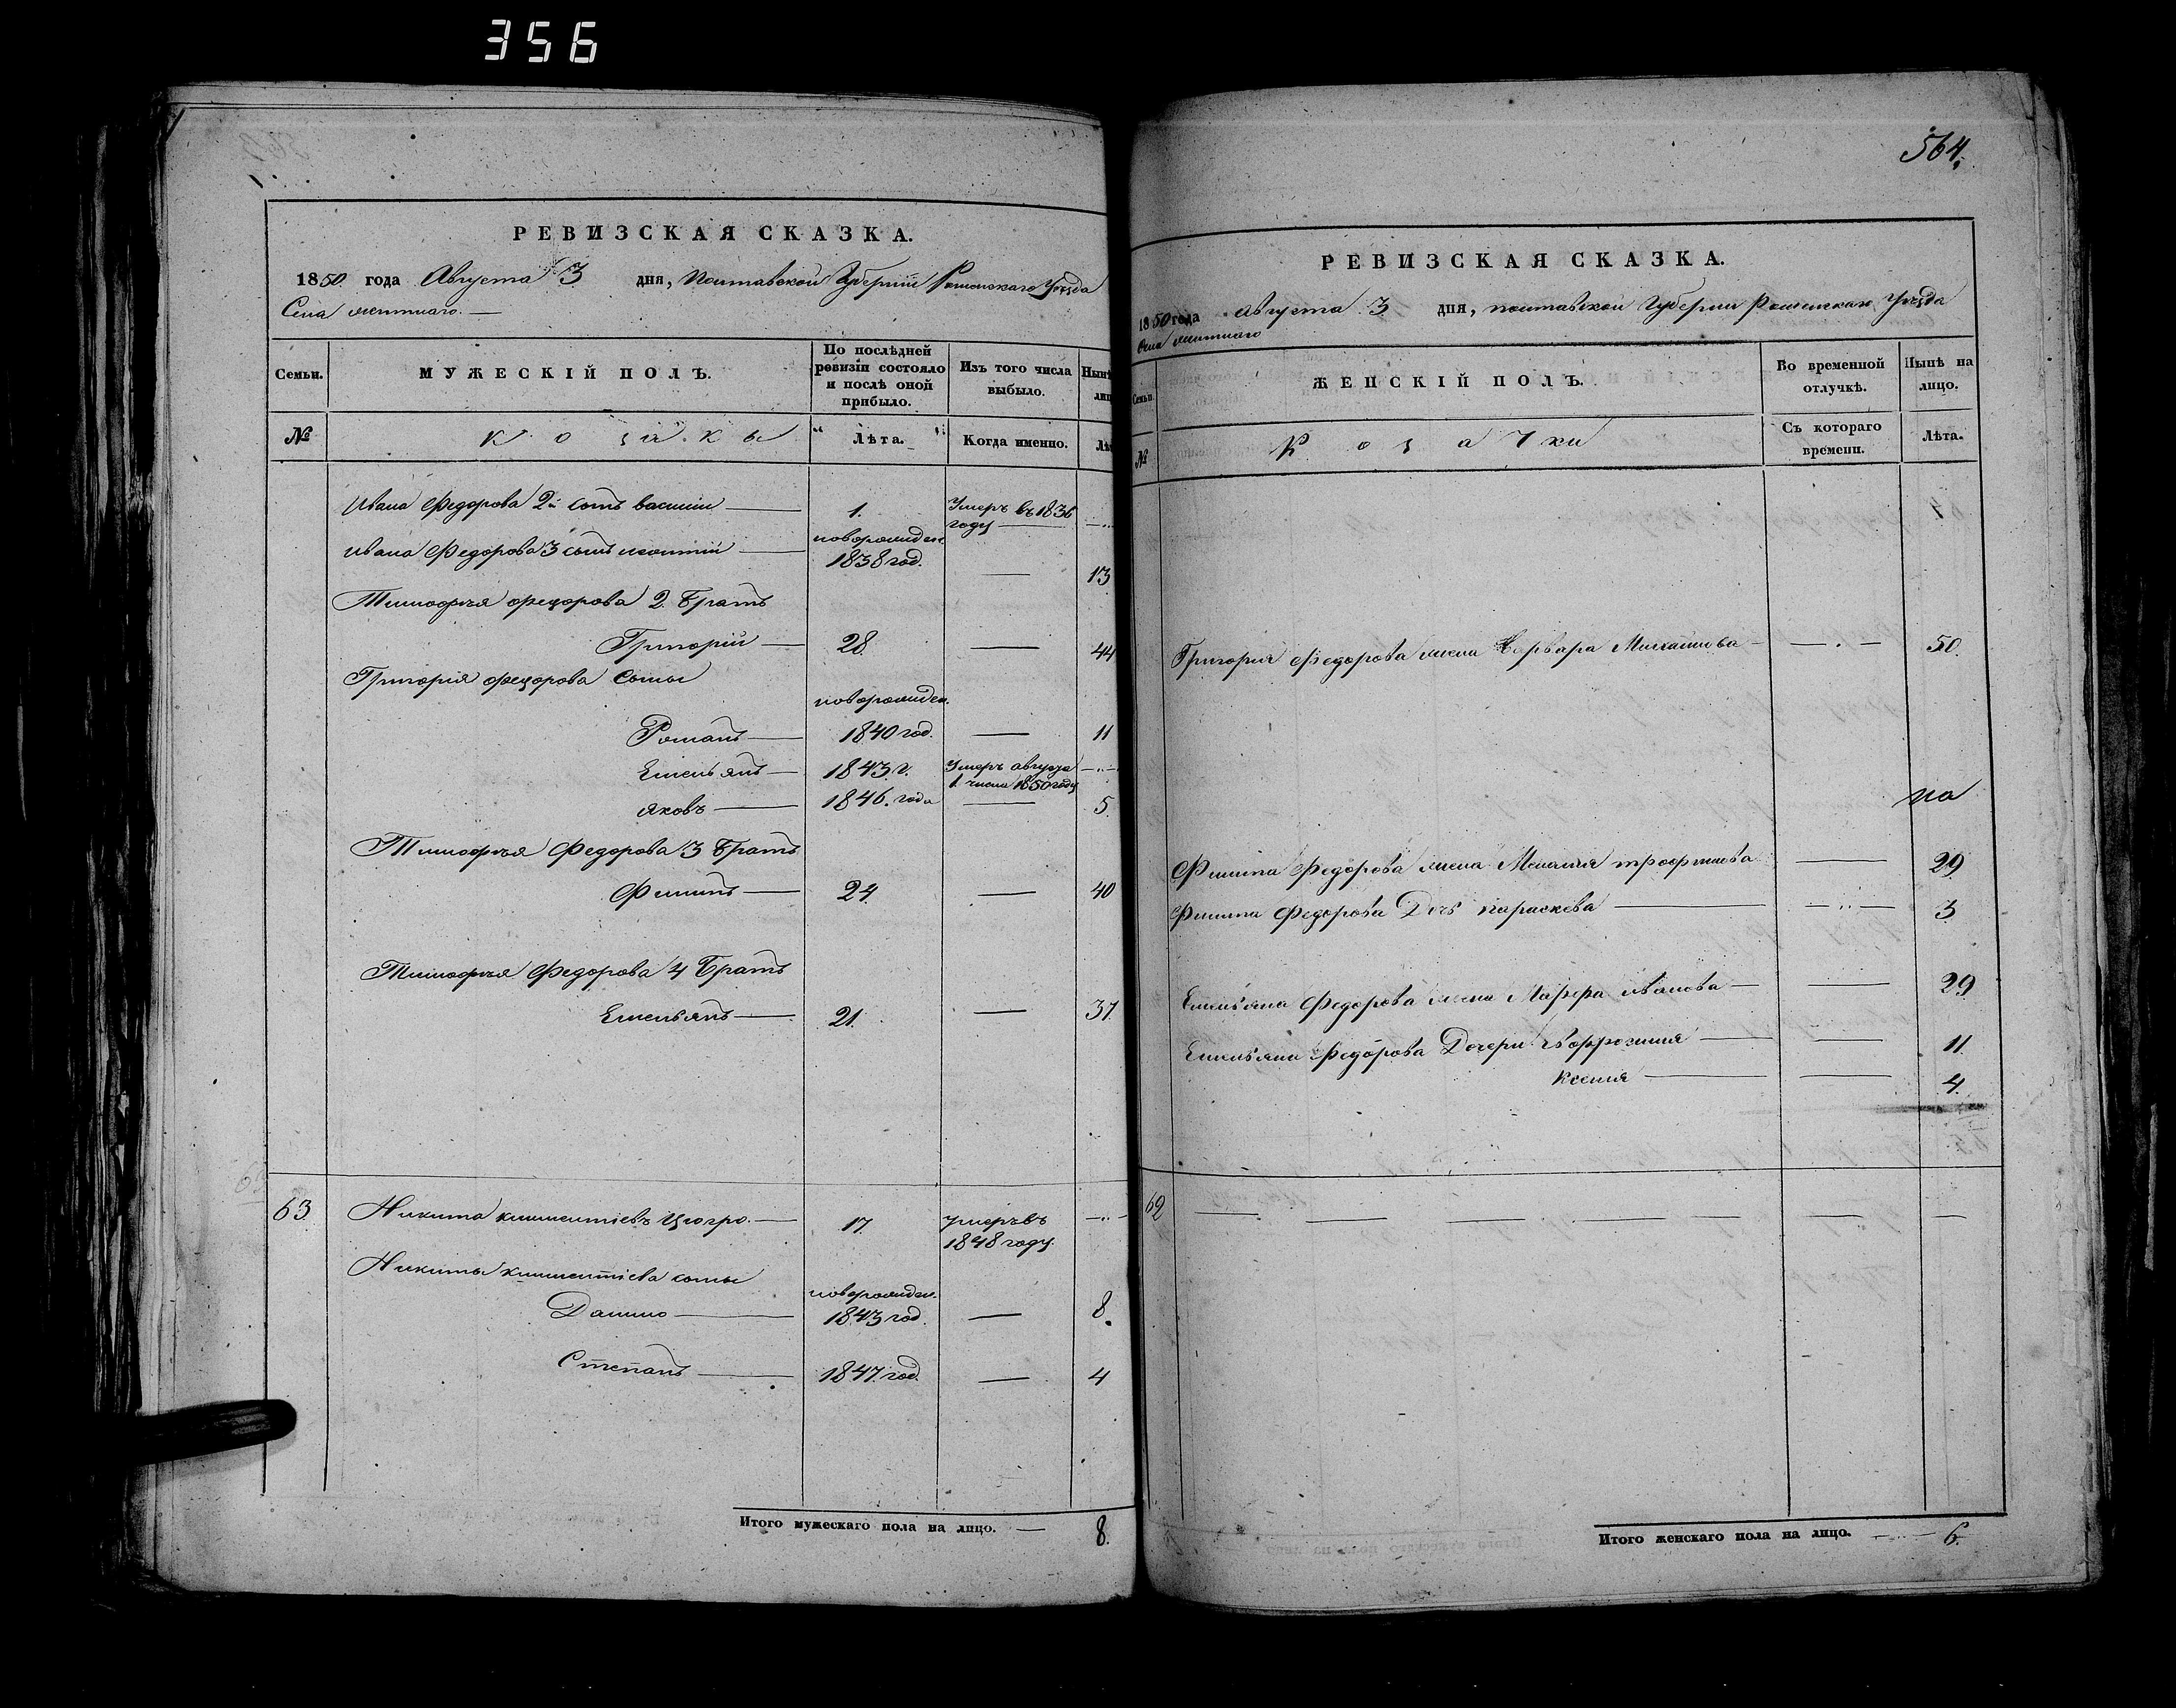 356
РЕВИЗСКАЯ СКАЗКА.
1850 года Августа 3 дня, Полтавской Губернiи Роменскаго Уѣзда
Села
Семьи.
МУЖЕСКІЙ ПОЛЪ.
По послѣдней ревизіи состояло и послѣ оной прибыло.
Изъ того числа выбыло.
№
Козаки
Лѣта.
Когда именно.
Ивана Федорова 2й сынъ василій 1. Умеръ въ 1836 году
Ивана Федорова 3 сынъ леонтій новорожден. 1838 год. 13
Тимофѣя Федорова 2. Братъ
Григорій 28. 44
Григорія Федорова Сыны
новорожден.
Романъ 1840 год. 11
Емельянъ 1843 г. Умеръ августа 1 числа 1850 году
Яковъ 1846. года 5.
Тимофѣя Федорова 3 Братъ
Филипъ 24. 40
Тимофѣя Федорова 4 Братъ
Емельянъ 21. 37.
63 Никита климентіевъ 17. умеръ въ 1848 году.
Никиты климентіева сыны
новорожден.
Данило 1843 год. 8.
Степанъ 1847. год. 4
Итого мужескаго пола на лицо. 8.
564.
РЕВИЗСКАЯ СКАЗКА.
1850 года Августа 3 дня, полтавской Губерніи Роменскаго Уѣзда
Села
Семьи.
ЖЕНСКІЙ ПОЛЪ.
Во временной отлучкѣ.
Нынѣ на лицо.
№
Козачки
Съ котораго времени.
Лѣта.
Григорія Федорова жена Варвара Михайлова 50.
Филипа Федорова жена Меланія трофимова 29
Филипа Федорова Дочь параскева 3
Емельяна Федорова жена Марфа иванова 29
Емельяна Федорова Дочери 11.
Ксенія 4.
62
Итого женскаго пола на лицо. 6.